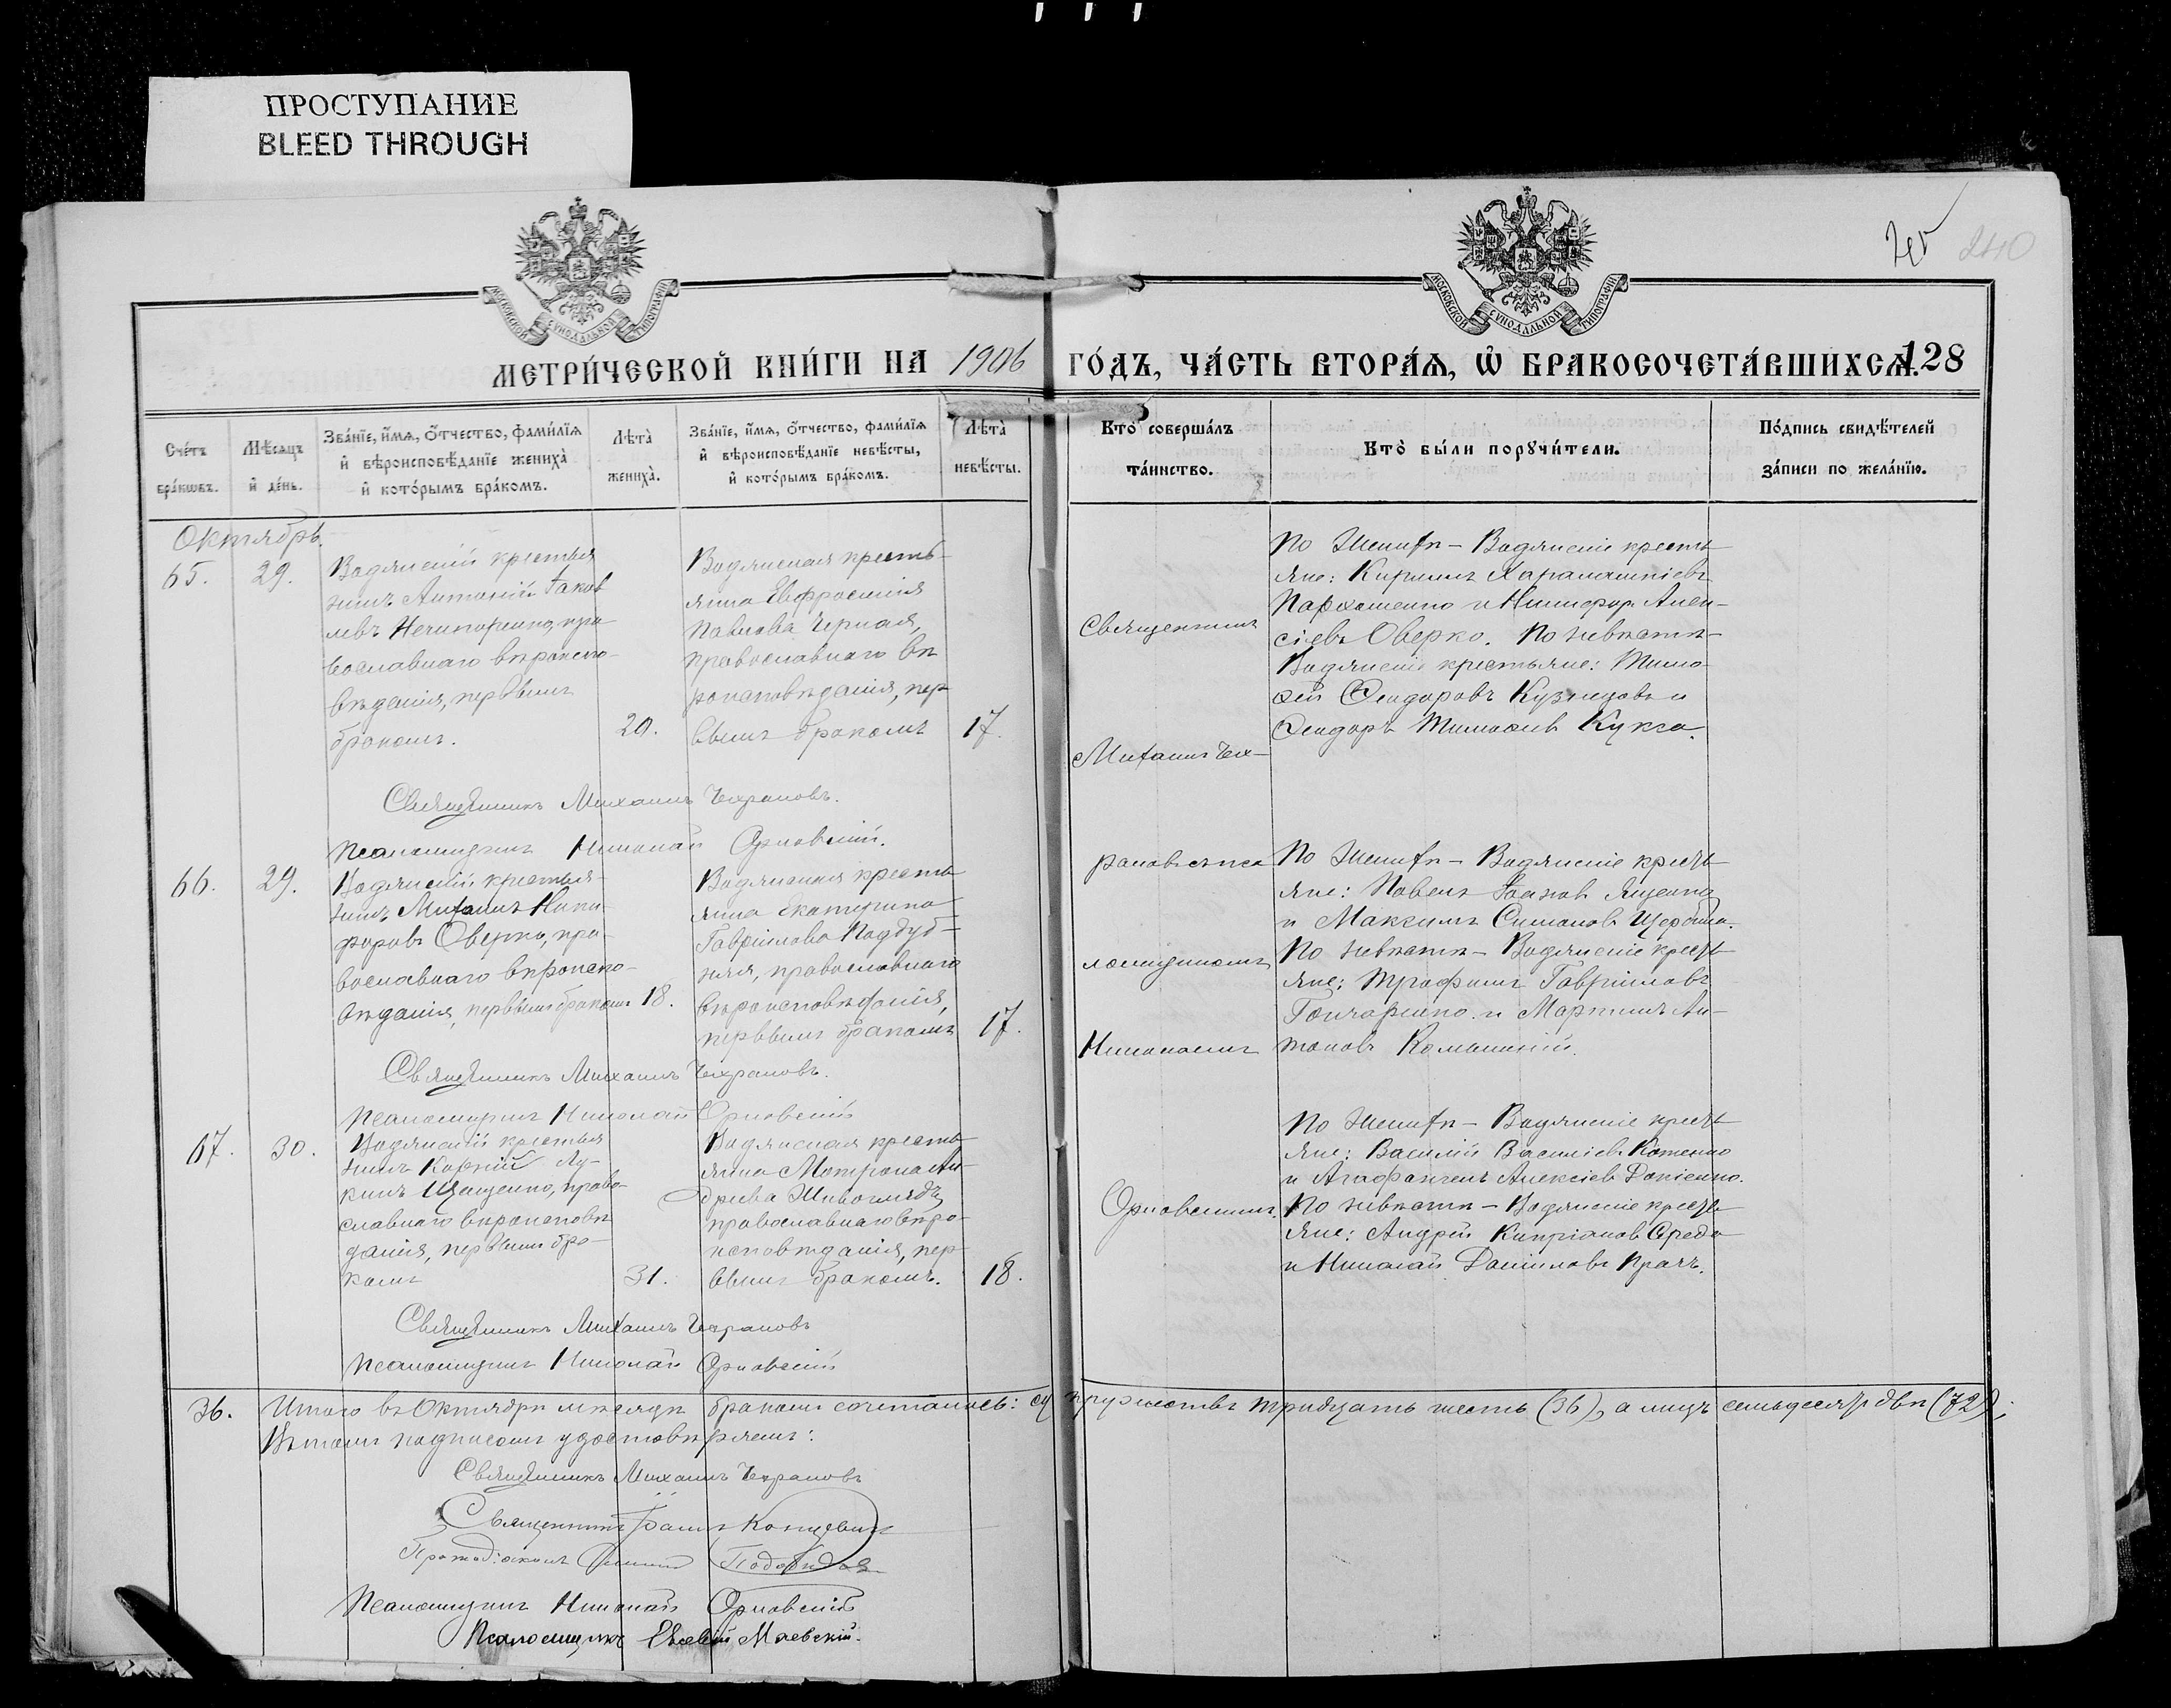 ПРОСТУПАНИЕ
BLEED THROUGH
МОСКОВСКОЙ СѴНОДАЛЬНОЙ ТИПОГРАФІИ
МОСКОВСКОЙ СѴНОДАЛЬНОЙ ТИПОГРАФІИ
240
МЕТРИ́ЧЕСКОЙ КНИ́ГИ НА 1906 ГО́ДЪ, ЧА́СТЬ ВТОРА́Ѧ, Ѡ҆ БРАКОСОЧЕТА́ВШИХСѦ.
128
Сче́тъ бра́кѡвъ.
Мѣ́сѧцъ и҆ де́нь.
Зва́нїе, и҆́мѧ, о҆́тчество, фами́лїѧ и҆ вѣроисповѣ́данїе жениха̀ и҆ кото́рымъ бра́комъ.
Лѣ́та̀ жениха̀.
Зва́нїе, и҆́мѧ, о҆́тчество, фами́лїѧ и҆ вѣроисповѣ́данїе невѣ́сты, и҆ кото́рымъ бра́комъ.
Лѣ́та̀ невѣ́сты.
Кто̀ соверша́лъ та́инство.
Кто̀ бы́ли порꙋчи́тели.
По́дпись свидѣ́телей за́писи по жела́нїю.
Октябрь.
65.
29.
Водянскій крестья
нинъ Антоній Іаков
левъ Нечипоренко, пра
вославнаго вѣроиспо-
вѣданія, первымъ
бракомъ.
20.
Водянская кресть-
янка Евфросинія
Павлова Черная,
православнаго вѣ
роисповѣданія, пер
вымъ бракомъ
17.
Священникъ
Михаилъ Чех-
По женихѣ – Водянскіе кресть
яне: Кириллъ Харалампіевъ
Пархоменко и Никифоръ Алек-
сіевъ Оверко. По невѣстѣ –
Водянскіе крестьяне: Тимо-
ѳей Ѳеодоровъ Кузнецовъ и
Ѳеодоръ Тимоѳеевъ Кукса.
Священникъ Михаилъ Чехрановъ.
Псаломщикъ Николай Орловскій.
66.
29.
Водянскій крестья-
нинъ Михаилъ Ники
форовъ Оверко, пра-
вославнаго вѣроиспо-
вѣданія, первымъ бракомъ
18.
Водянская кресть
янка Екатерина
Гавріилова Поддуб-
ная, православнаго
вѣроисповѣданія,
первымъ бракомъ
17.
рановъ съ пса
ломщикомъ
Николаемъ
По женихѣ – Водянскіе кресть
яне: Павелъ Іаковъ Яценко
и Максимъ Симоновъ Щербина.
По невѣстѣ – Водянскіе кресть
яне: Трофимъ Гавріиловъ
Гончаренко и Мартинъ Ан-
тоновъ
Священникъ Михаилъ Чехрановъ.
Псаломщикъ Николай Орловскій
67.
30.
Водянскій крестья
нинъ Корнилій Лу-
кинъ Ищенко, право-
славнаго вѣроисповѣ
данія, первымъ бра-
комъ
31.
Водянская кресть
янка Матрона Ан-
дреева Живоглядъ,
православнаго вѣро-
исповѣданія, пер-
вымъ бракомъ.
18.
Орловскимъ.
По женихѣ – Водянскіе кресть
яне: Василій Василіевъ Котенко
и Агафангелъ Алексіевъ
По невѣстѣ – Водянскіе кресть
яне: Андрей Кипріановъ Середа
и Николай Даніиловъ Прачъ.
Священникъ Михаилъ Чехрановъ
Псаломщикъ Николай Орловскій
36. Итого въ Октябрѣ мѣсяцѣ бракомъ сочеталось: супружествъ тридцать шесть (36), а лицъ семьдесятъ двѣ (72);
Въ томъ подписомъ удостовѣряемъ:
Священникъ Михаилъ Чехрановъ
Священникъ
Протодіаконъ
Псаломщикъ Николай Орловскій
Псаломщикъ Евсевій Маевскій.